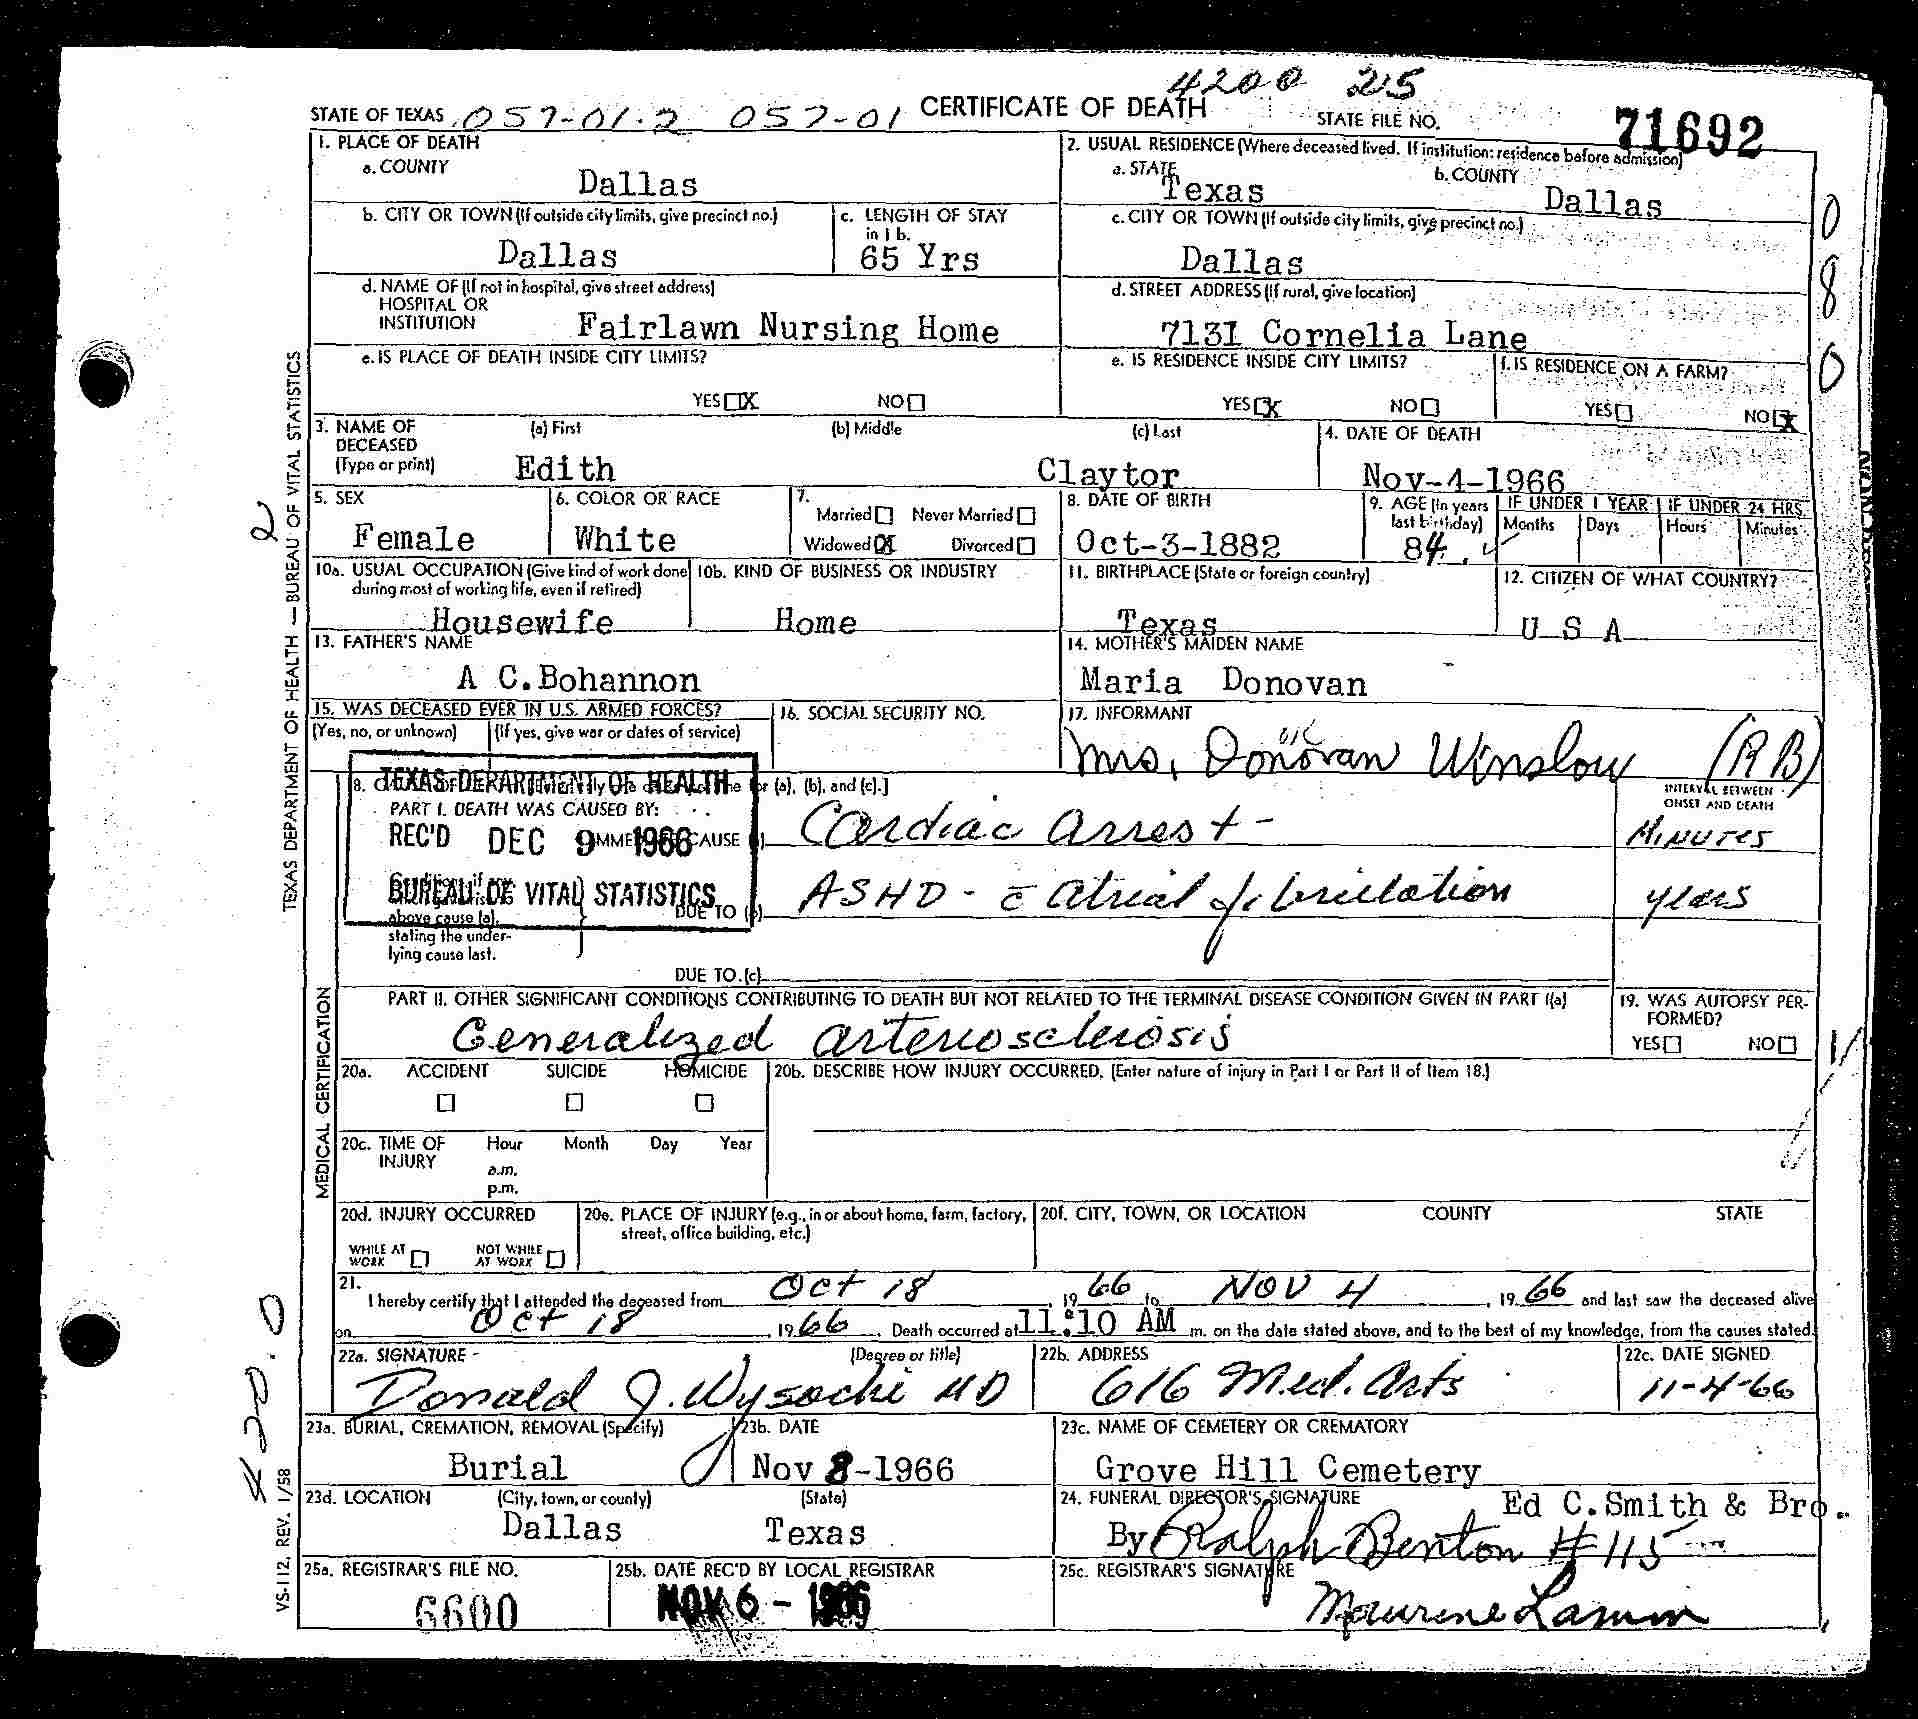 4200 215
STATE OF TEXAS 057-01-2 057-01 CERTIFICATE OF DEATH STATE FILE NO. 71692
1. PLACE OF DEATH
a. COUNTY
Dallas
2. USUAL RESIDENCE (Where deceased lived. If institution: residence before admission)
a. STATE Texas b. COUNTY Dallas
b. CITY OR TOWN (If outside city limits, give precinct no.)
Dallas
c. LENGTH OF STAY in 1 b.
65 Yrs
c. CITY OR TOWN (If outside city limits, give precinct no.)
Dallas
d. NAME OF (If not in hospital, give street address)
HOSPITAL OR
INSTITUTION Fairlawn Nursing Home
d. STREET ADDRESS (If rural, give location)
7131 Cornelia Lane
e. IS PLACE OF DEATH INSIDE CITY LIMITS?
YES X NO
e. IS RESIDENCE INSIDE CITY LIMITS?
YES X NO
f. IS RESIDENCE ON A FARM?
YES NO X
0
8
0
3. NAME OF DECEASED (Type or print)
(a) First (b) Middle (c) Last
Edith Claytor
4. DATE OF DEATH
Nov-4-1966
5. SEX
Female
6. COLOR OR RACE
White
7.
Married Never Married
Widowed X Divorced
8. DATE OF BIRTH
Oct-3-1882
9. AGE (In years last birthday)
84
IF UNDER 1 YEAR IF UNDER 24 HRS.
Months Days Hours Minutes
10a. USUAL OCCUPATION (Give kind of work done during most of working life, even if retired)
Housewife
10b. KIND OF BUSINESS OR INDUSTRY
Home
11. BIRTHPLACE (State or foreign country)
Texas
12. CITIZEN OF WHAT COUNTRY?
U S A
13. FATHER'S NAME
A C.Bohannon
14. MOTHER'S MAIDEN NAME
Maria Donovan
15. WAS DECEASED EVER IN U.S. ARMED FORCES?
(Yes, no, or unknown) (If yes, give war or dates of service)
16. SOCIAL SECURITY NO.
17. INFORMANT
OK
Mrs. Donovan Winslow (RB)
TEXAS DEPARTMENT OF HEALTH
REC'D DEC 9 1966
BUREAU OF VITAL STATISTICS
(a), (b), and (c).]
INTERVAL BETWEEN ONSET AND DEATH
PART I. DEATH WAS CAUSED BY:
CAUSE Cardiac arrest - Minutes
DUE TO (b) ASHD - c̄ atrial fibrillation years
above cause (a),
stating the under-
lying cause last.
DUE TO (c)
PART II. OTHER SIGNIFICANT CONDITIONS CONTRIBUTING TO DEATH BUT NOT RELATED TO THE TERMINAL DISEASE CONDITION GIVEN IN PART I(a)
Generalized arteriosclerosis
19. WAS AUTOPSY PERFORMED?
YES NO
20a. ACCIDENT SUICIDE HOMICIDE
20b. DESCRIBE HOW INJURY OCCURRED. (Enter nature of injury in Part I or Part II of Item 18.)
20c. TIME OF INJURY
Hour Month Day Year
a.m.
p.m.
20d. INJURY OCCURRED
WHILE AT WORK NOT WHILE AT WORK
20e. PLACE OF INJURY (e.g., in or about home, farm, factory, street, office building, etc.)
20f. CITY, TOWN, OR LOCATION COUNTY STATE
21.
I hereby certify that I attended the deceased from Oct 18, 19 66 to Nov 4, 19 66 and last saw the deceased alive
on Oct 18, 19 66. Death occurred at 11:10 AM m. on the date stated above, and to the best of my knowledge, from the causes stated.
22a. SIGNATURE (Degree or title)
Donald J. Wysocki MD
22b. ADDRESS
616 Med. Arts
22c. DATE SIGNED
11-4-66
23a. BURIAL, CREMATION, REMOVAL (Specify)
Burial
23b. DATE
Nov 8-1966
23c. NAME OF CEMETERY OR CREMATORY
Grove Hill Cemetery
23d. LOCATION (City, town, or county) (State)
Dallas Texas
24. FUNERAL DIRECTOR'S SIGNATURE Ed C.Smith & Bro.
By Ralph Benton #115
25a. REGISTRAR'S FILE NO.
6600
25b. DATE REC'D BY LOCAL REGISTRAR
NOV 6 - 1966
25c. REGISTRAR'S SIGNATURE
Maurine
TEXAS DEPARTMENT OF HEALTH — BUREAU OF VITAL STATISTICS
2
MEDICAL CERTIFICATION
420.0
VS-112, REV. 1/58